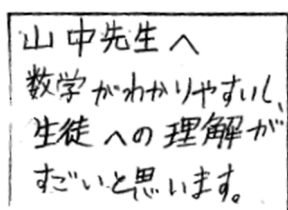 山中先生へ
数学がわかりやすいし、
生徒への理解が
すごいと思います。